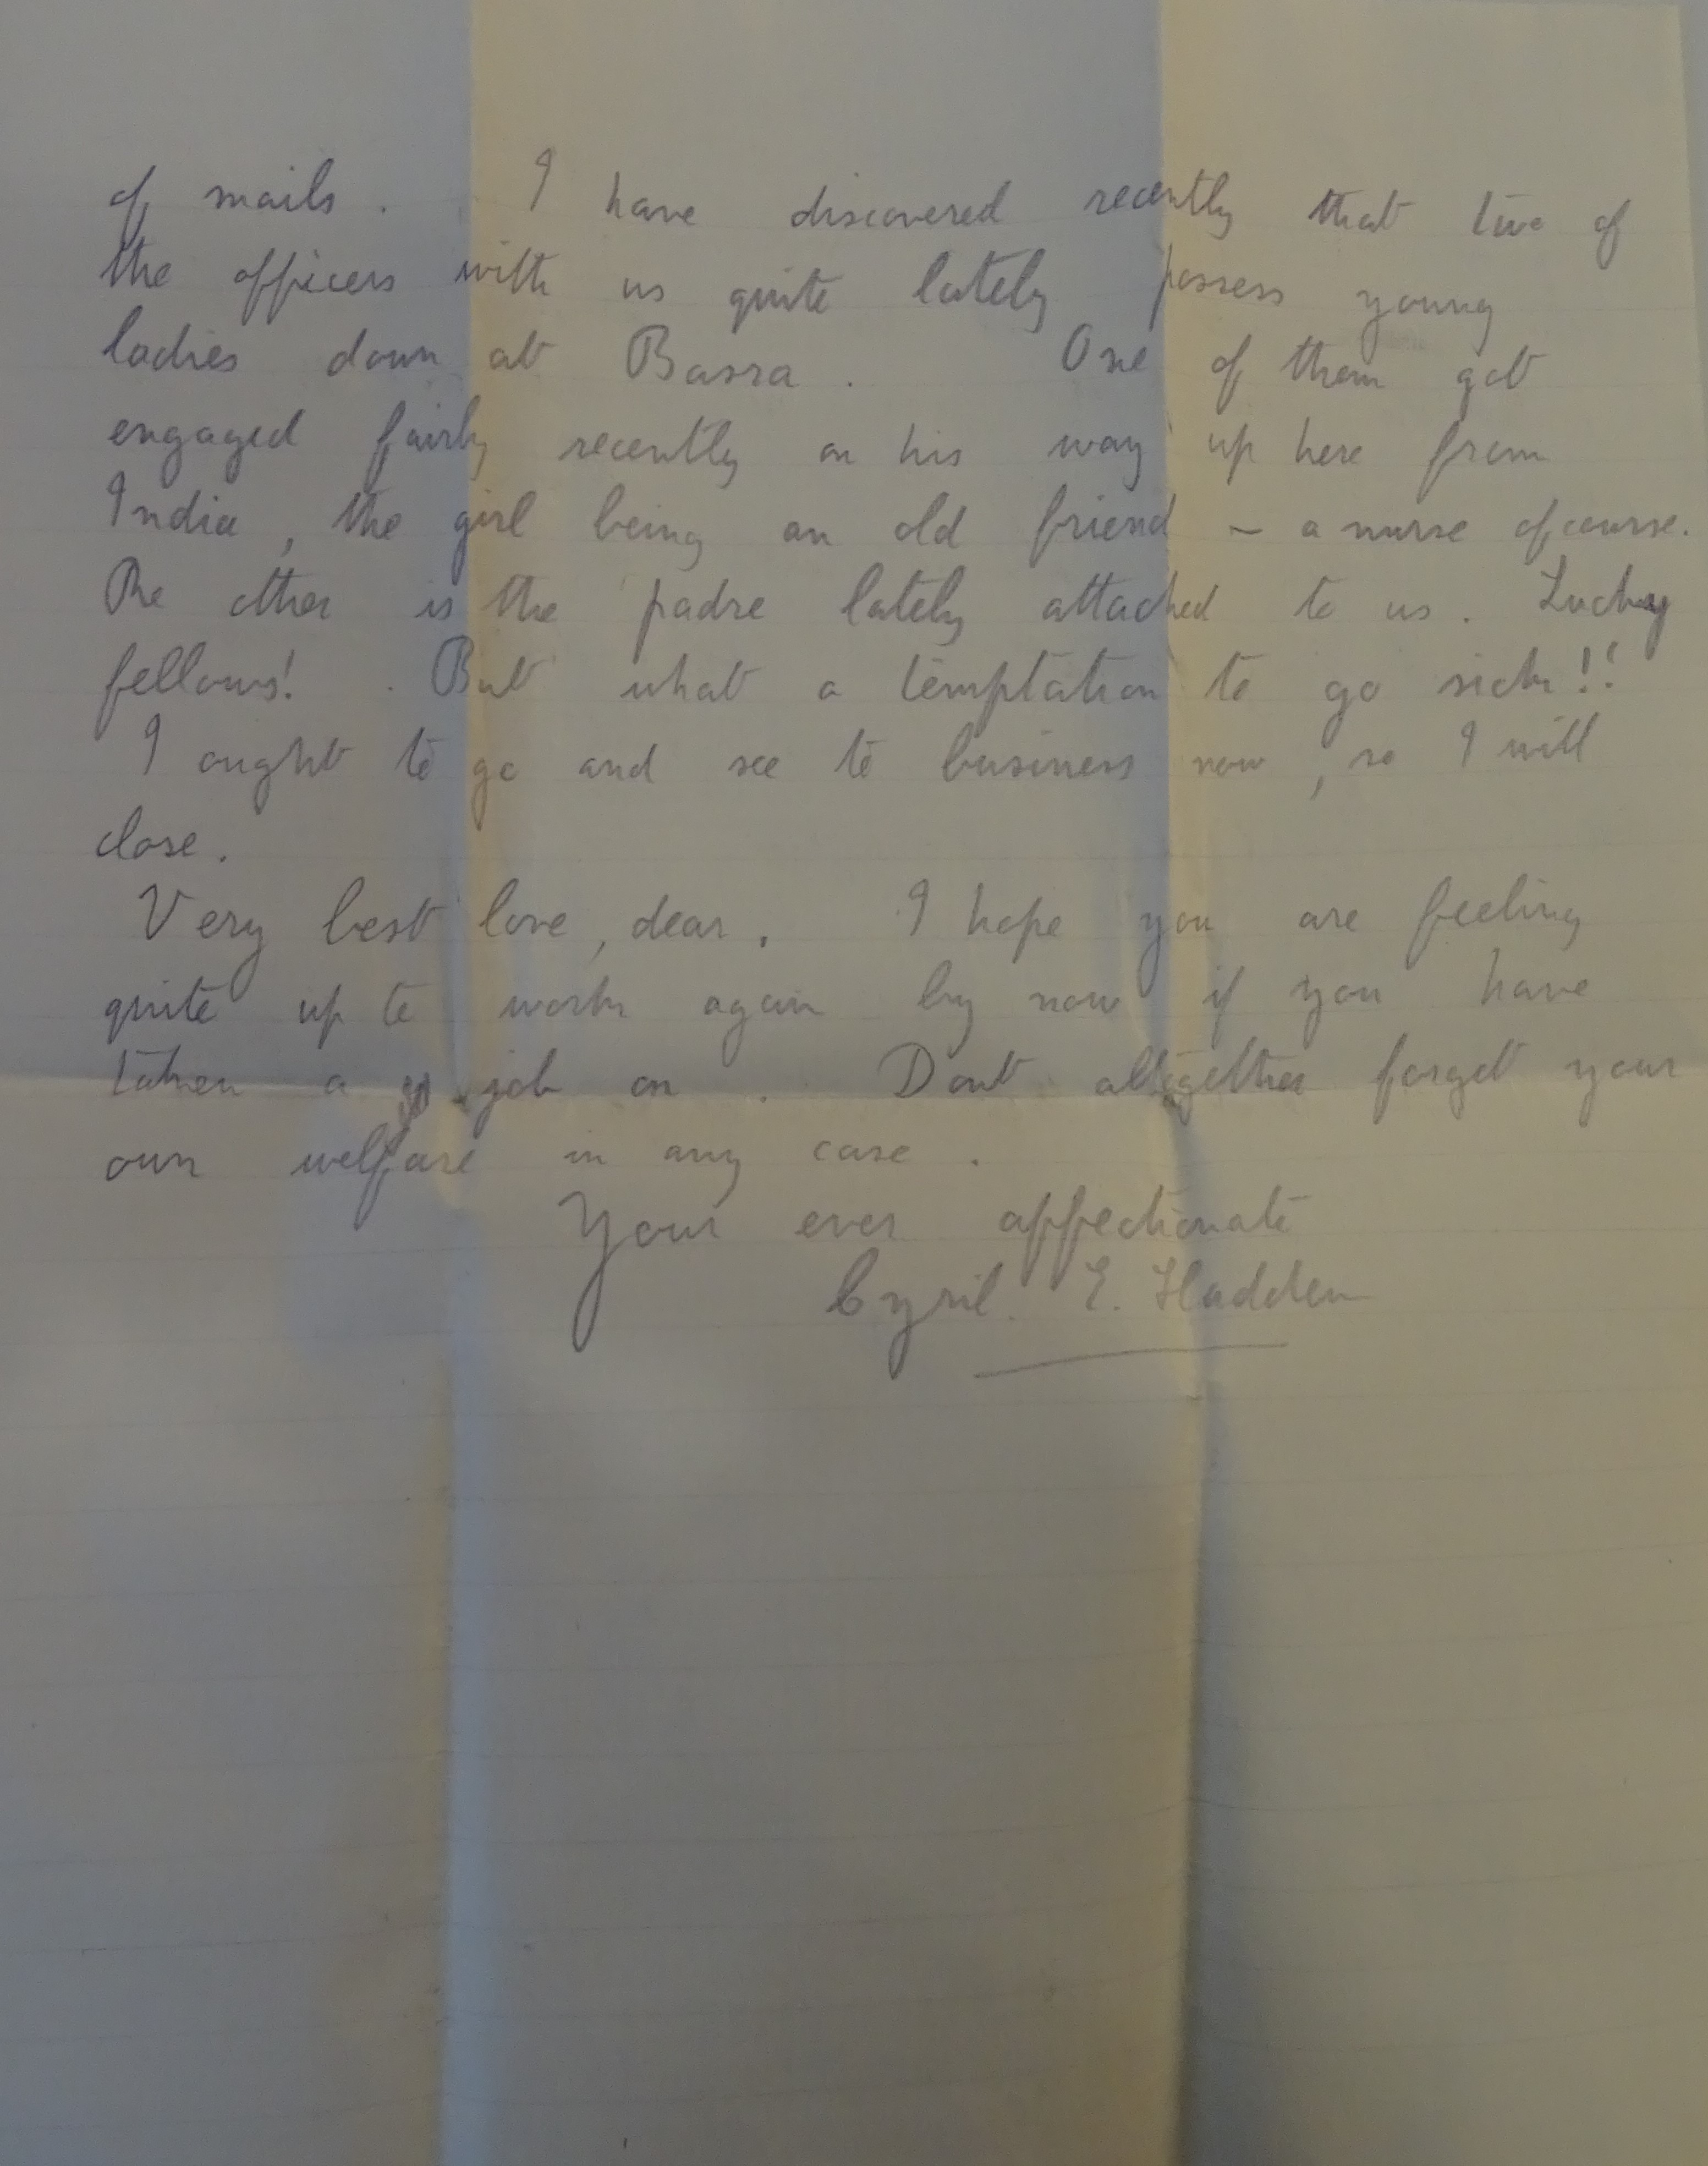 of mails. I have discovered recently that two of
the officers with us quite lately possess young
ladies down at Basra. One of them got
engaged fairly recently on his way up here from
India, the girl being an old friend – a nurse of course.
The other is the padre lately attached to us. Lucky
fellows! But what a temptation to go sick!!
I ought to go and see to business now, so I will
close.
Very best love, dear. I hope you are feeling
quite up to work again by now if you have
taken a job on. Dont altogether forget your
own welfare in any case.
Your ever affectionate
Cyril. E. Hadden